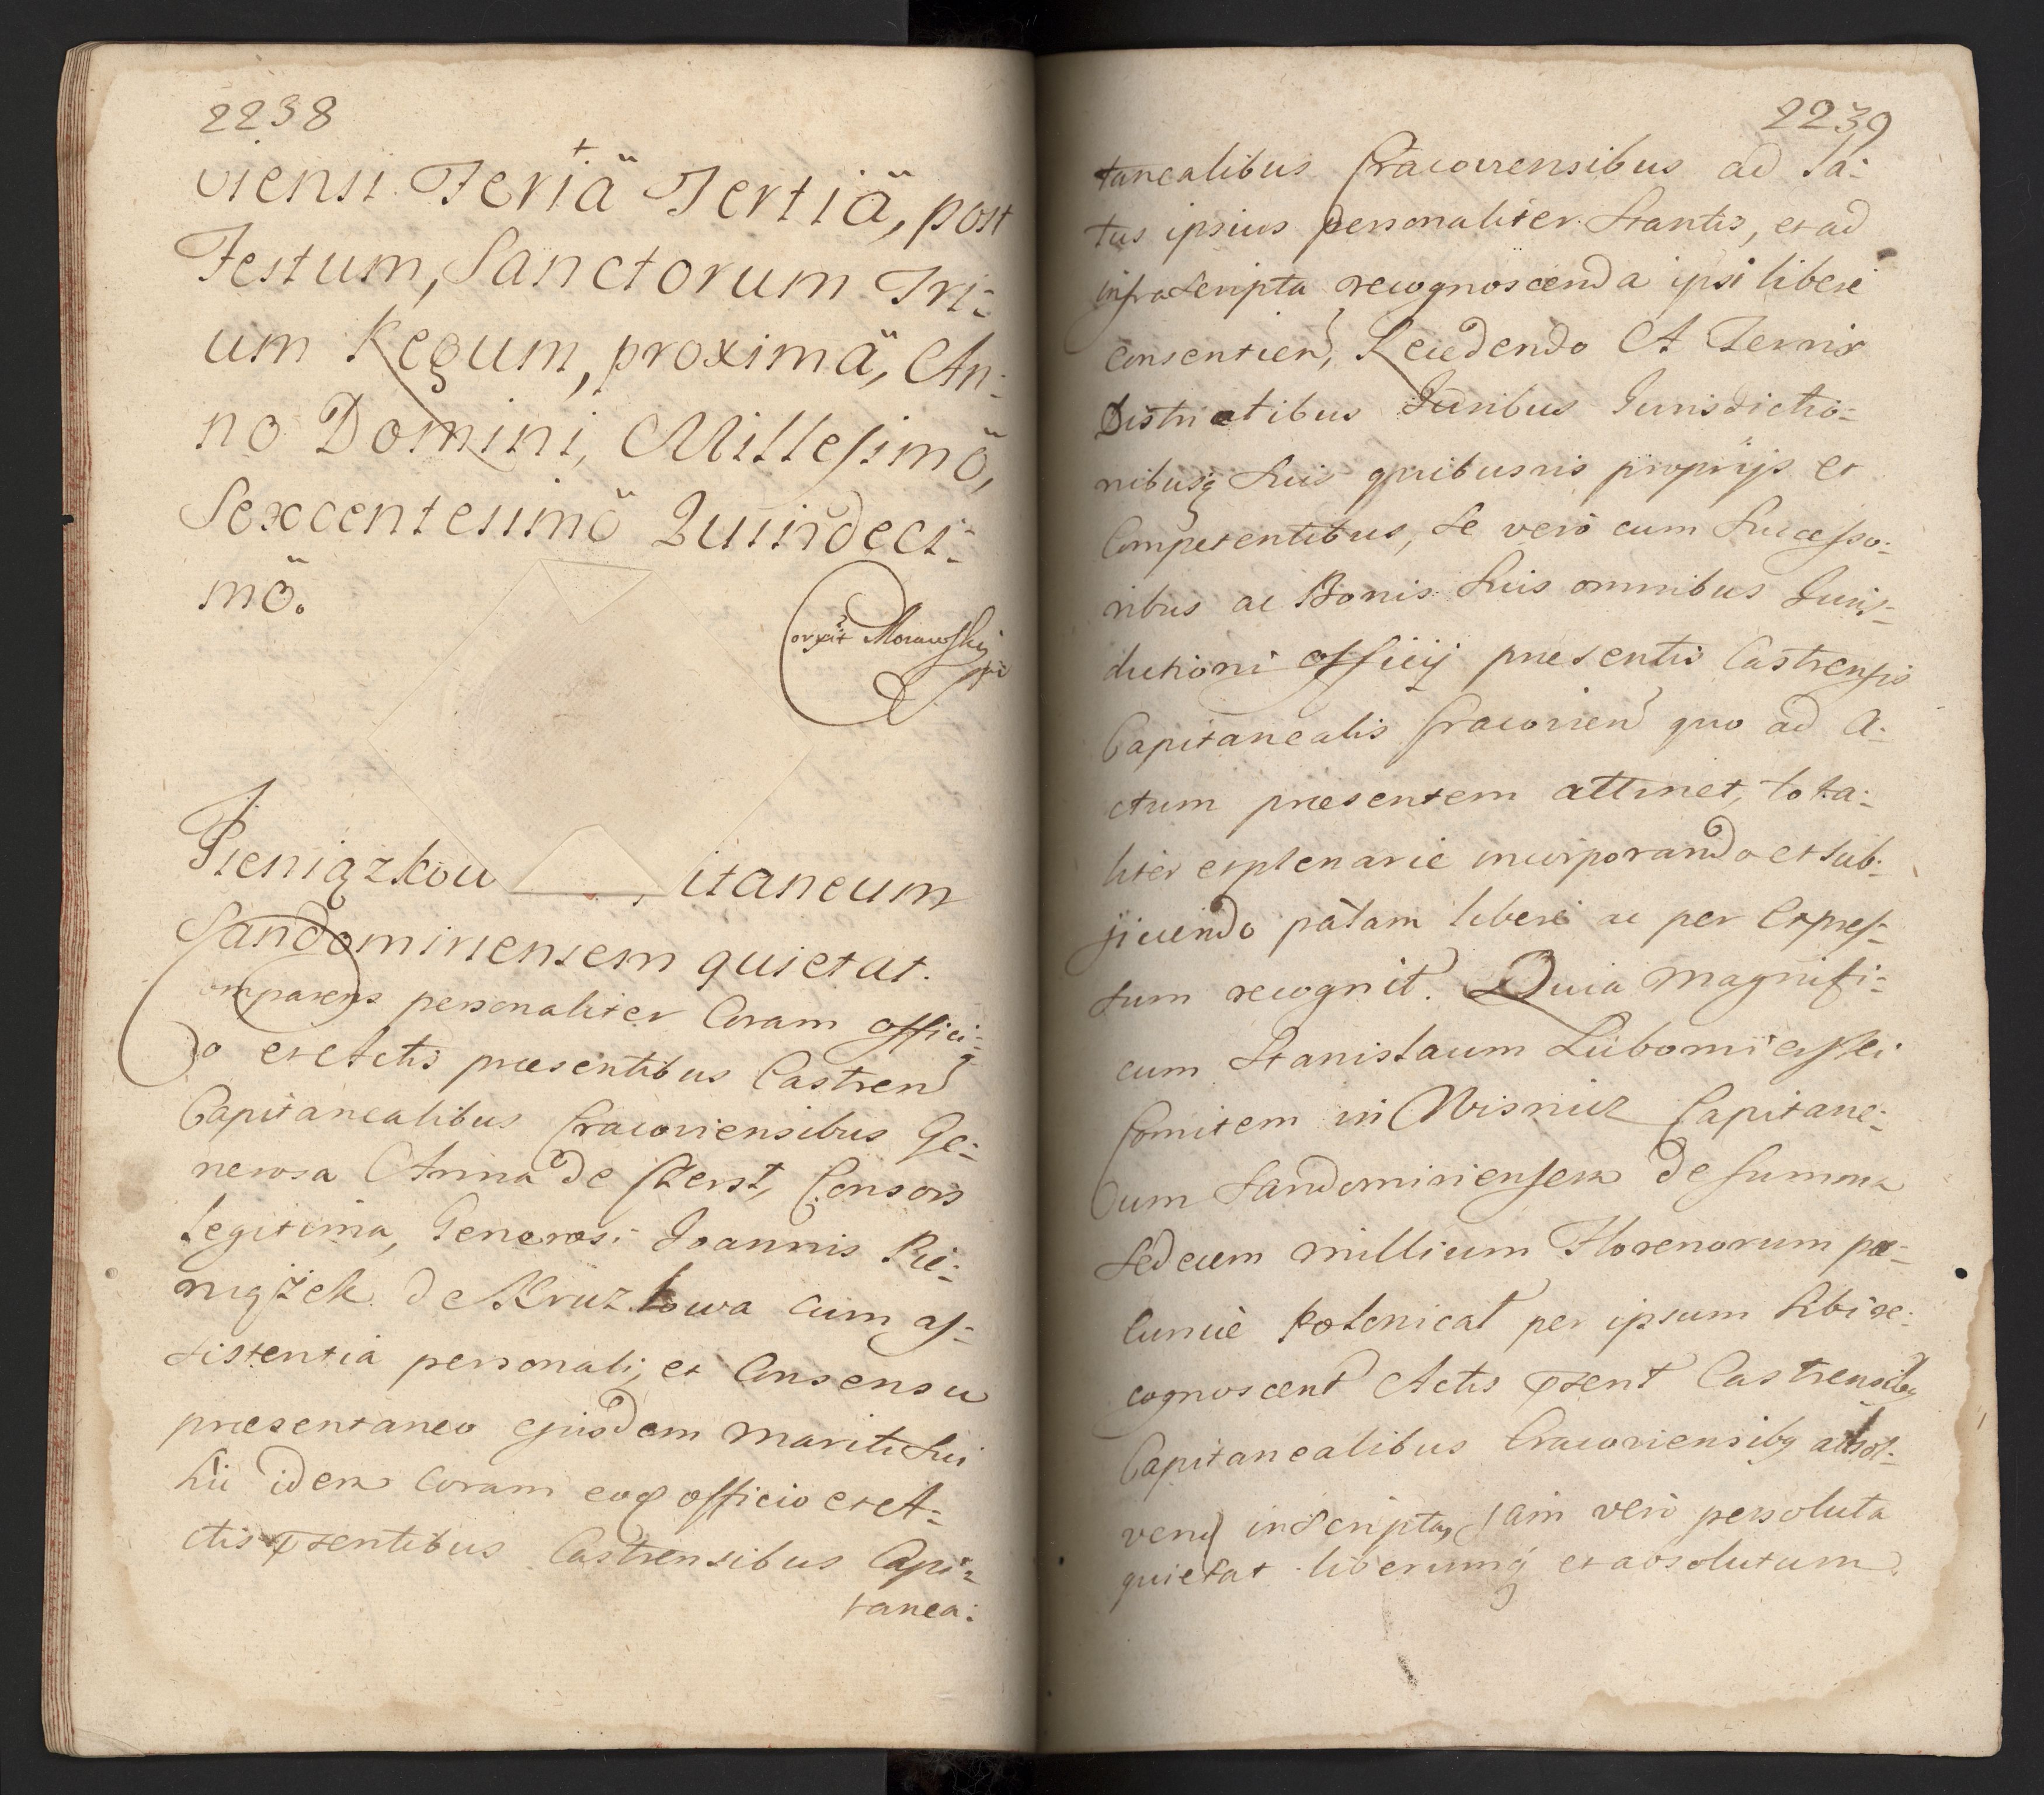 2238
viensi Feriä Tertiä, post
Festum, Sanctorum Tri-
um Regum, proximä, An-
no Domini, Millesimö,
Sexcentesimö Quindeci-
mö.
Correxit Morawski
Pieniązkow itaneum
Sandomiriensem quietat.
Comparens personaliter Coram offici-
o et Actis præsentibus Castren
Capitanealibus Cracoviensibus Ge-
nerosa Anna de Skerst, Consors
legitima, Generosi Joannis Pie-
niążek de Kruzlowa cum as-
sistentia personali, et Consensu
præsentaneo ejusdem mariti sui
hic idem Coram eoq officio et A-
ctis pzentibus Castrensibus Capi-
tanea:
2239
tanealibus Cracoviensibus ad la-
tus ipsius personaliter Stantis, et ad
infrascripta recognoscenda ipsi liberè
consentien, Recedendo A Terris
Districtibus Juribus Jurisdictio-
nibusq suis quibusvis proprijs et
Competentibus, se verò cum Successo-
ribus ac Bonis suis omnibus Juris-
dictioni officij præsentis Castrensis
Capitanealis Cracovien quo ad A-
ctum præsentem attinet, tota-
liter et plenariè incorporando et sub-
jiciendo palam liberè ac per expres-
sum recognit. Quia Magnifi-
cum Stanislaum Lubomierski
Comitem in Wisnicz Capitane-
um Sandomiriensem de summa
sedecem millium Florenorum pe-
cuniæ Polonical per ipsum sibi re-
cognoscent Actis pzent Castrensibq
Capitanealibus Cracoviensibq absol-
vend inscripta, jam verò persoluta
quietat liberumq et absolutum